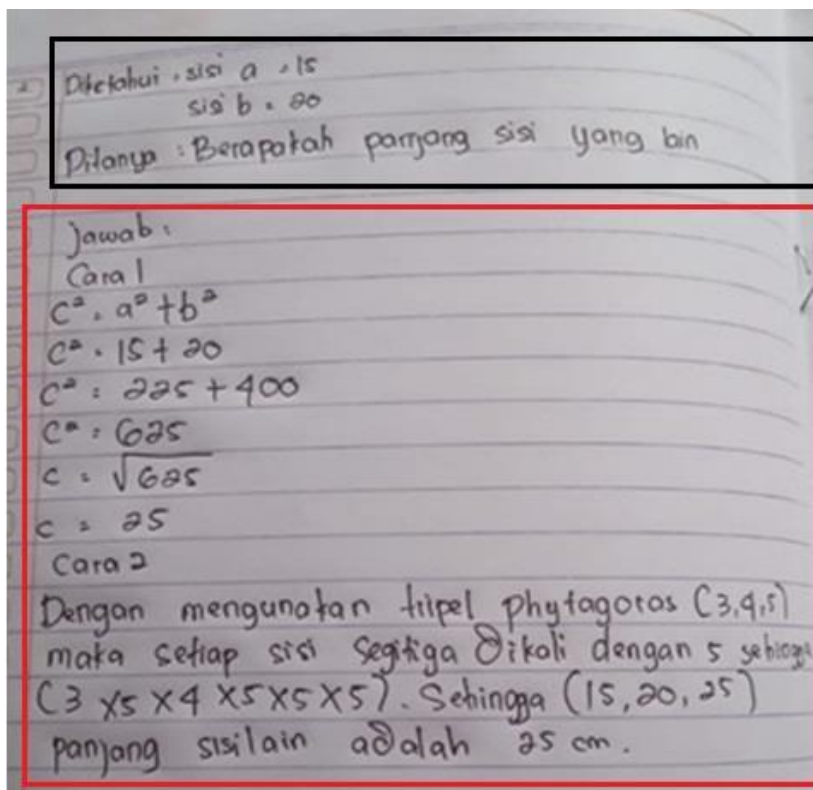 Diketahui : sisi a = 15
sisi b = 20
Ditanya : Berapakah panjang sisi yang lain
Jawab :
Cara 1
c² = a² + b²
c² = 15 + 20
c² = 225 + 400
c² = 625
c = √625
c = 25
Cara 2
Dengan mengunakan tripel phytagoras (3,4,5)
maka setiap sisi segitiga dikali dengan 5 sehingga
(3 x5 x4 x5 x5 x5). Sehingga (15, 20, 25)
panjang sisi lain adalah 25 cm.